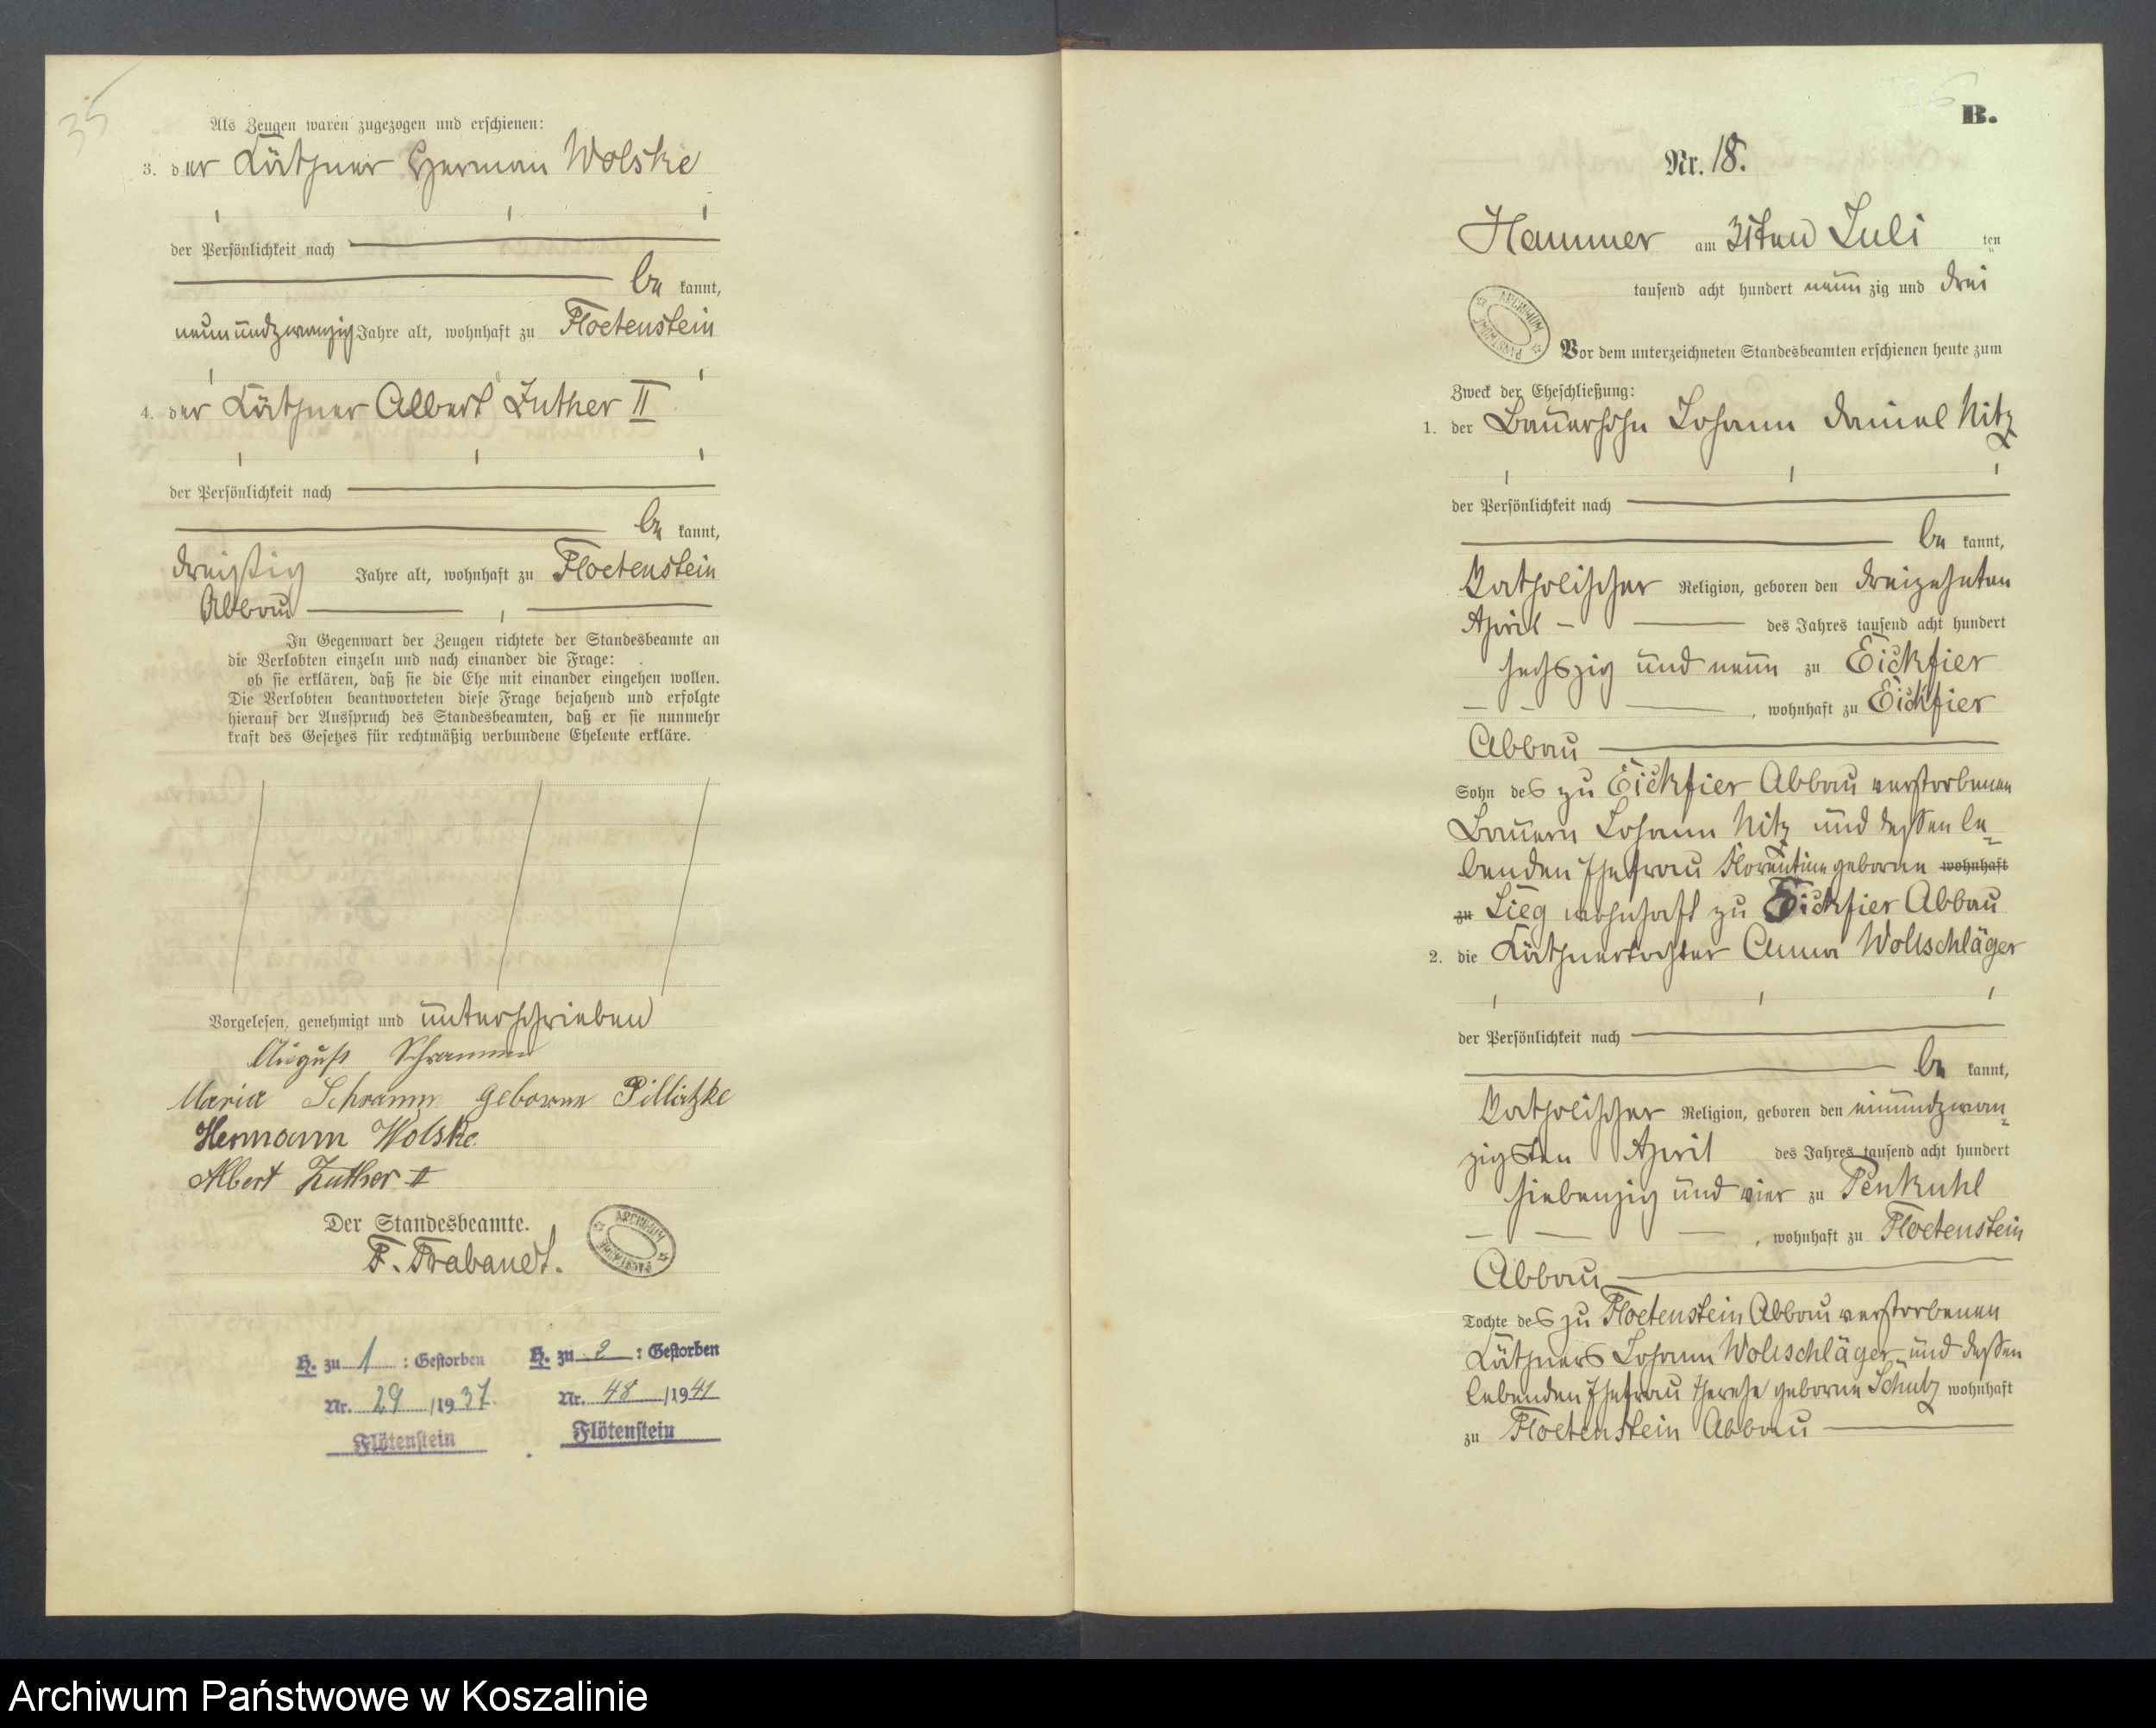 35
Als Zeugen waren zugezogen und erschienen:
3. der Käthner Herman Wolske
der Persönlichkeit nach
be kannt,
neunundzwanzig Jahre alt, wohnhaft zu Floetenstein
4. der Käthner Albert Zuther II
der Persönlichkeit nach
be kannt,
dreißig Jahre alt, wohnhaft zu Floetenstein
Abbau
In Gegenwart der Zeugen richtete der Standesbeamte an
die Verlobten einzeln und nach einander die Frage:
ob sie erklären, daß sie die Ehe mit einander eingehen wollen.
Die Verlobten beantworteten diese Frage bejahend und erfolgte
hierauf der Ausspruch des Standesbeamten, daß er sie nunmehr
kraft des Gesetzes für rechtmäßig verbundene Eheleute erkläre.
Vorgelesen, genehmigt und unterschrieben
August Schramm
Maria Schramm geborne Pillatzke
Hermann Wolske
Albert Zuther II
Der Standesbeamte.
F. Brabandt.
ARCHIWUM PAŃSTWOWE
H. zu 1 : Gestorben
Nr. 29 /1937
Flötenstein
H. zu 2 : Gestorben
Nr. 48 /1941
Flötenstein
B.
Nr. 18.
Hammer am 31ten Juli ten
tausend acht hundert neun zig und drei
ARCHIWUM PAŃSTWOWE
Vor dem unterzeichneten Standesbeamten erschienen heute zum
Zweck der Eheschließung:
1. der Bauersohn Johann Daniel Nitz
der Persönlichkeit nach
be kannt,
katholischer Religion, geboren den dreizehnten
April des Jahres tausend acht hundert
sechszig und neun zu Eickfier
, wohnhaft zu Eickfier
Abbau
Sohn des zu Eickfier Abbau verstorbenen
Bauern Johann Nitz und dessen le-
benden Ehefrau Florentine geborne wohnhaft
zu Lieg wohnhaft zu Eickfier Abbau
2. die Käthnertochter Anna Wollschläger
der Persönlichkeit nach
be kannt,
katholischer Religion, geboren den einundzwan-
zigsten April des Jahres tausend acht hundert
siebenzig und vier zu Penkuhl
, wohnhaft zu Floetenstein
Abbau
Tochte des zu Floetenstein Abbau verstorbenen
Käthners Johann Wollschläger und dessen
lebenden Ehefrau Therese geborne Schulz wohnhaft
zu Floetenstein Abbau
Archiwum Państwowe w Koszalinie